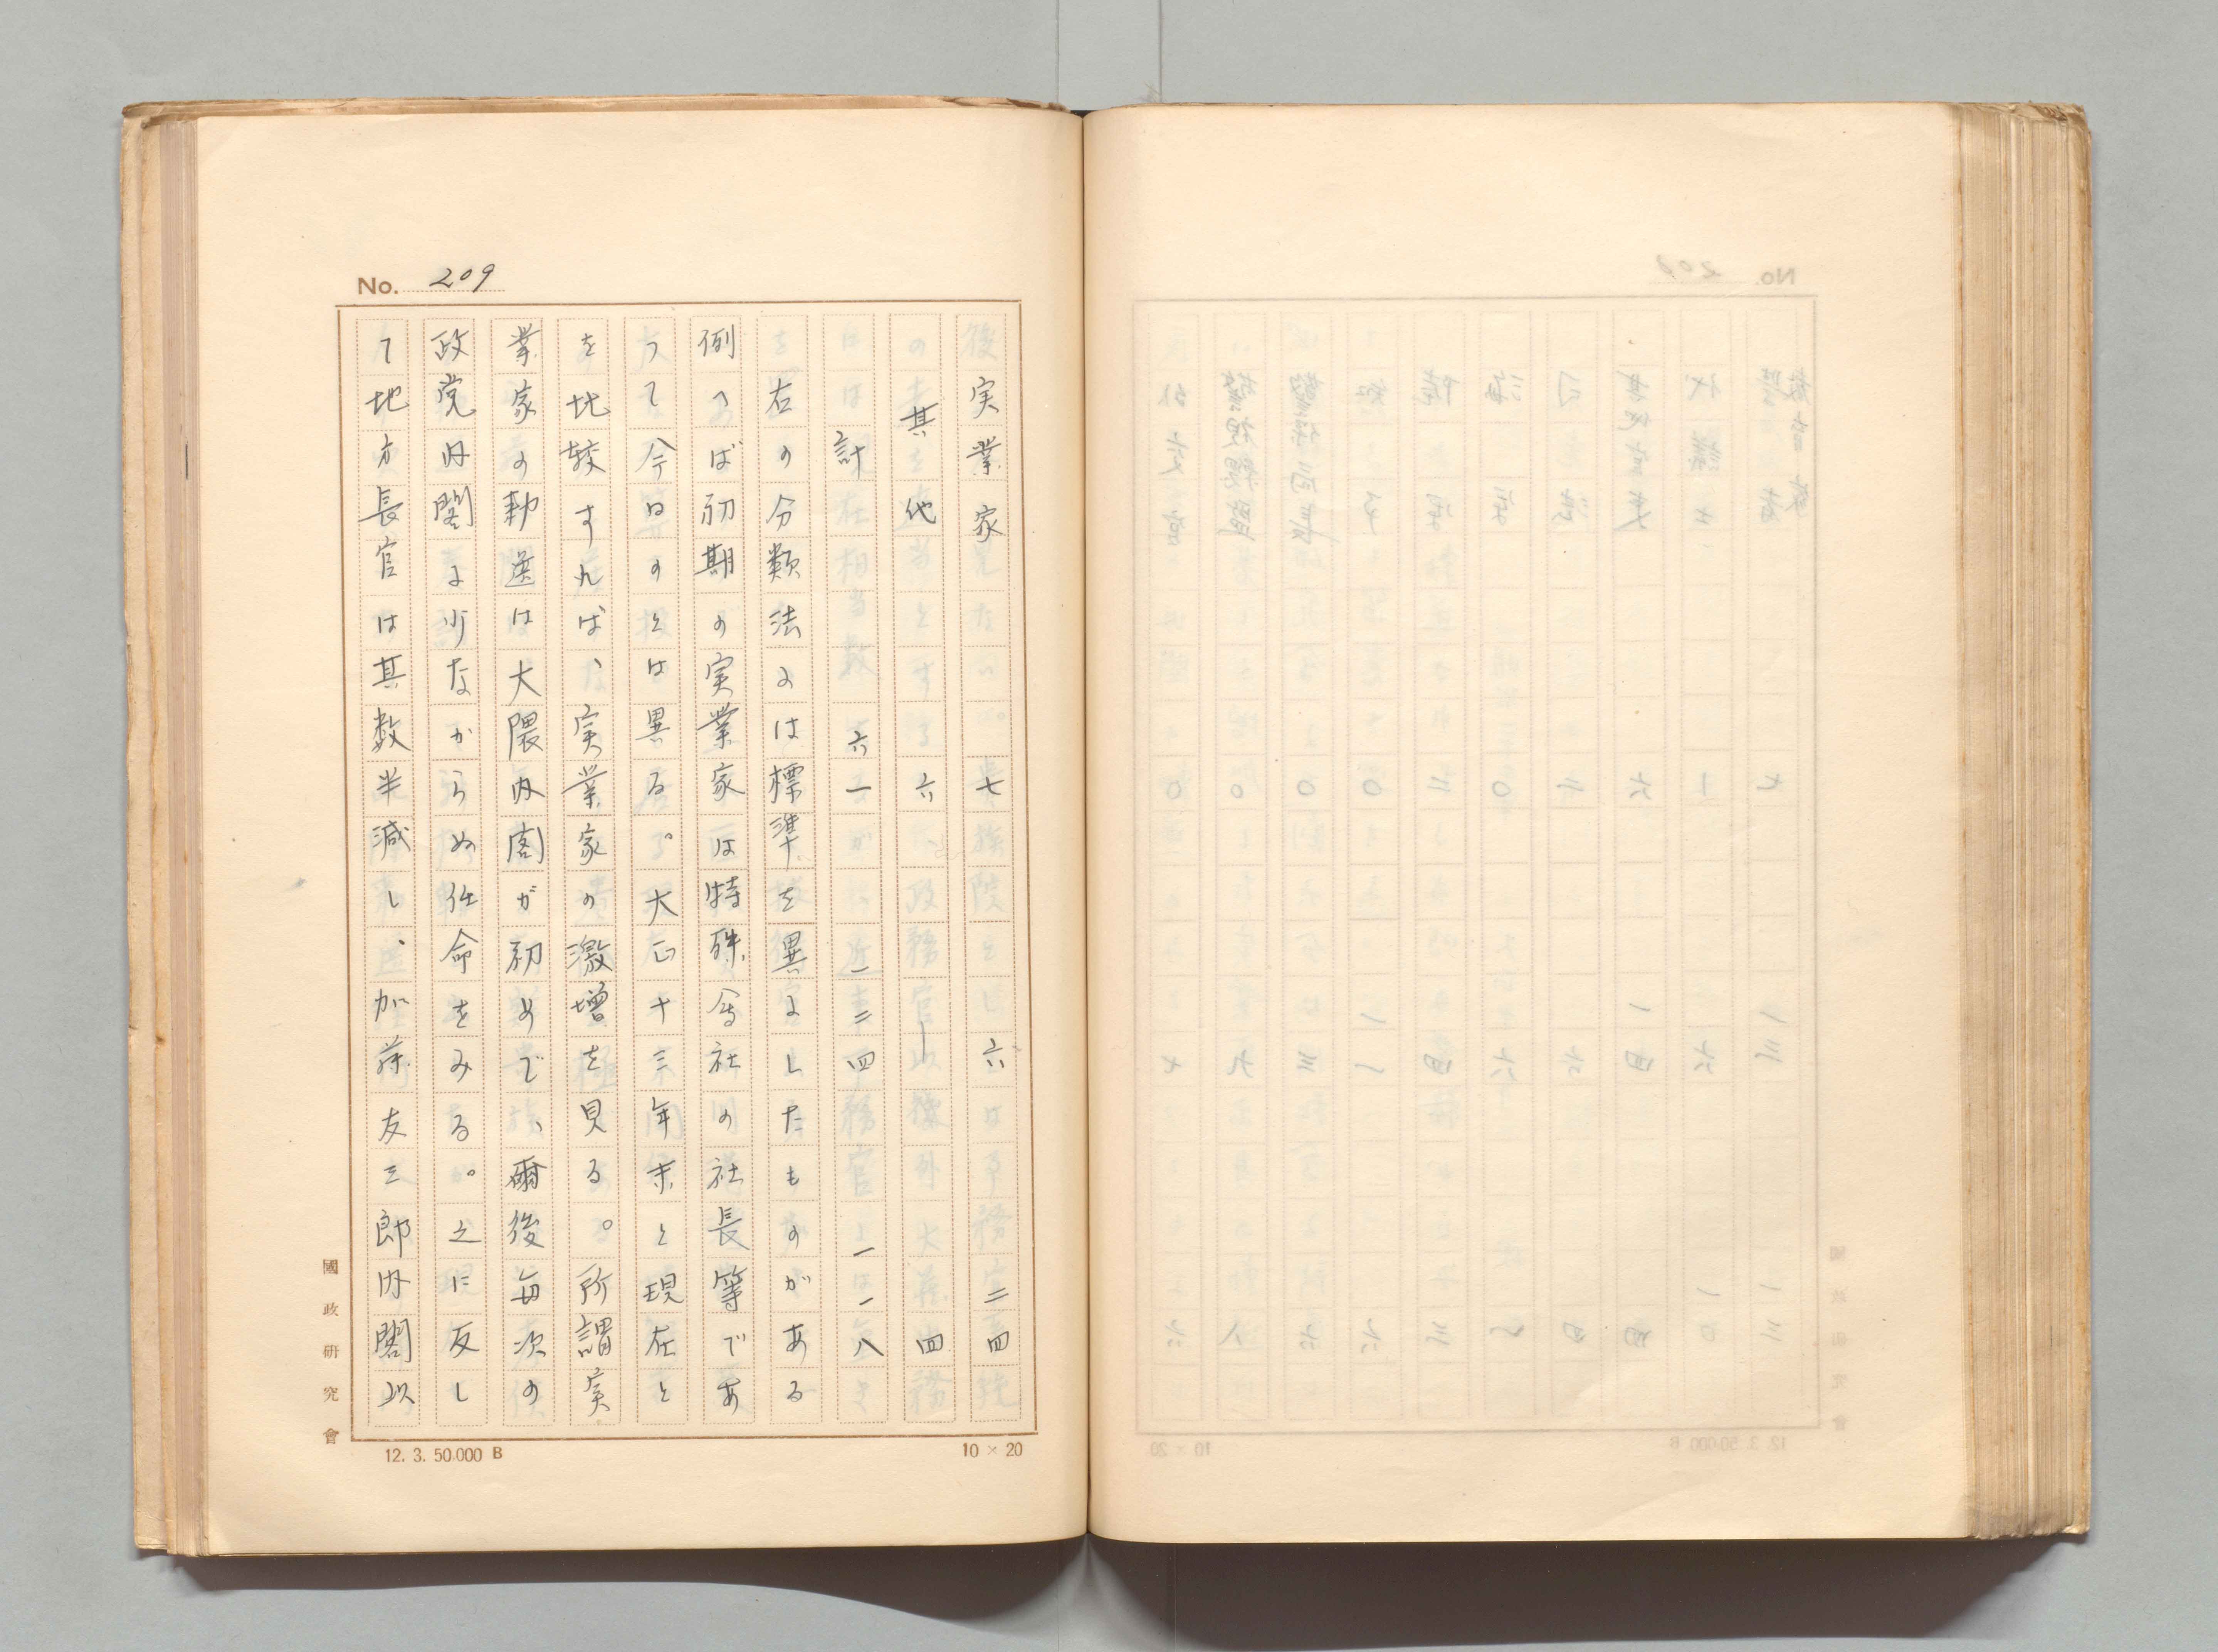 No. 209
実業家 七 六 二四
其他 六 四
計 六一 一二四 一一八
右の分類法には標準を異にしたものがある
例へば初期の実業家は特殊会社の社長等であ
つて今日のとは異る。大正十三年末と現在と
を比較すれば、実業家の激増を見る。所謂実
業家の勅選は大隈内閣が初めで、爾後毎次の
政党内閣に少なからぬ任命をみる。之に反し
て地方長官は其数半減し、加藤友三郎内閣以
國政研究會
12. 3. 50.000 B
10 × 20